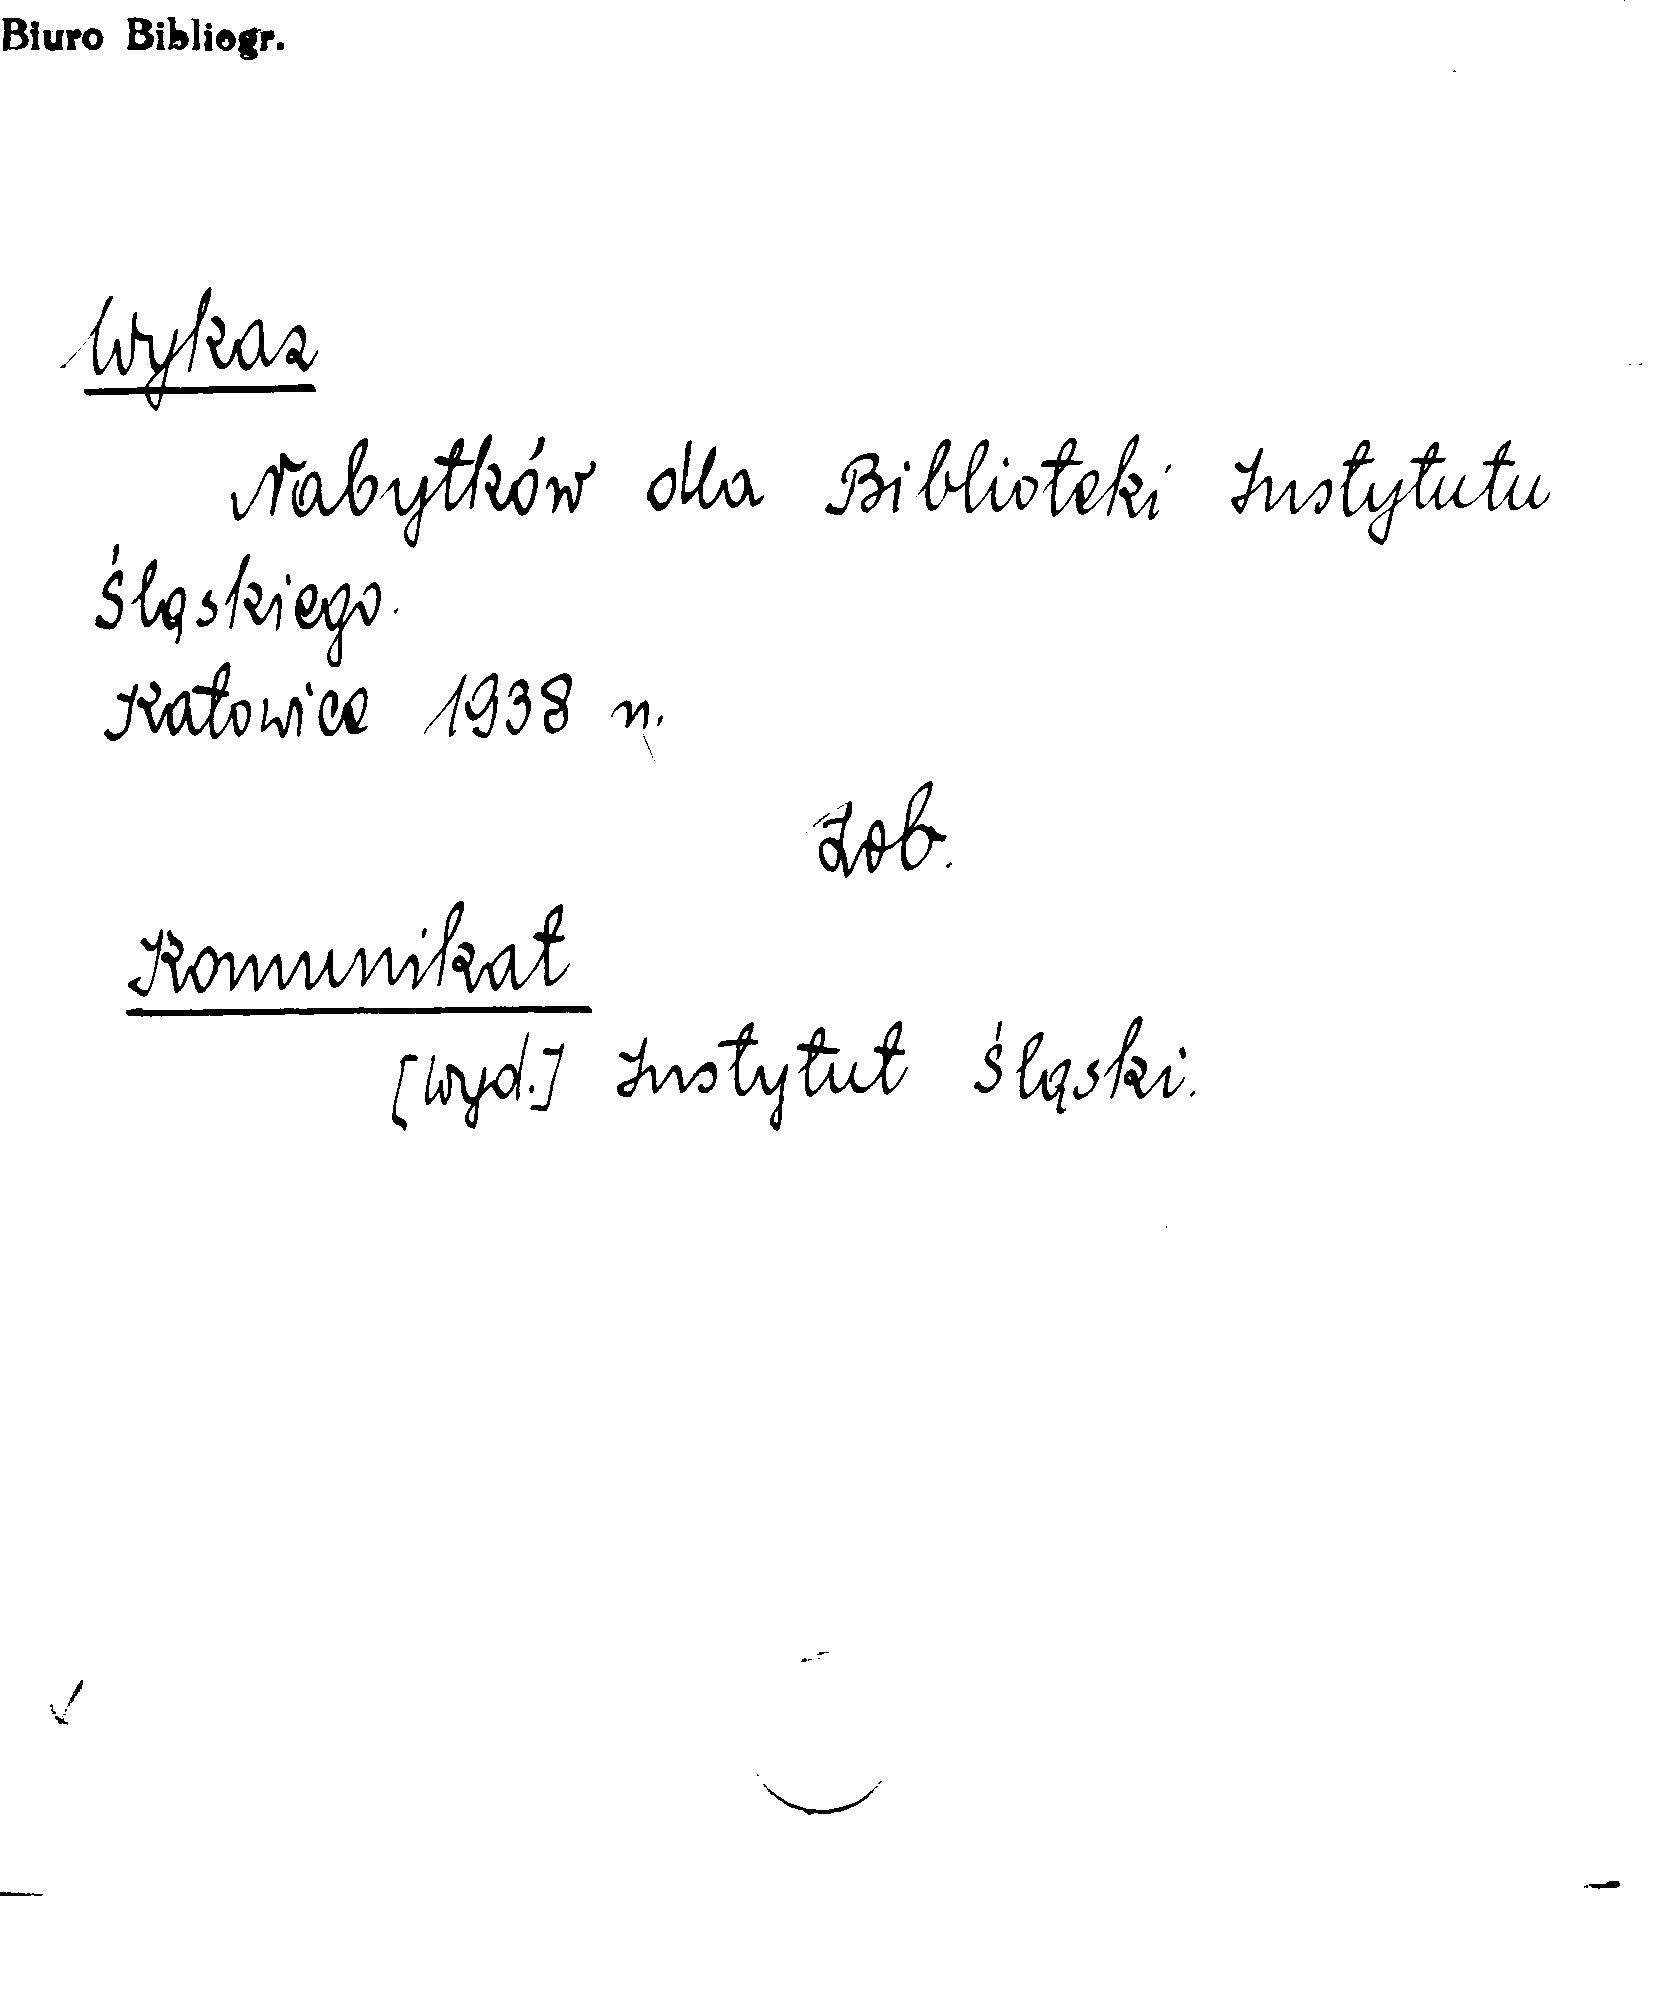 Biuro Bibliogr.
Wykaz
Nabytków dla Biblioteki Instytutu
Śląskiego.
Katowice 1938 n.
Zob.
Komunikat
[wyd.] Instytut Śląski.